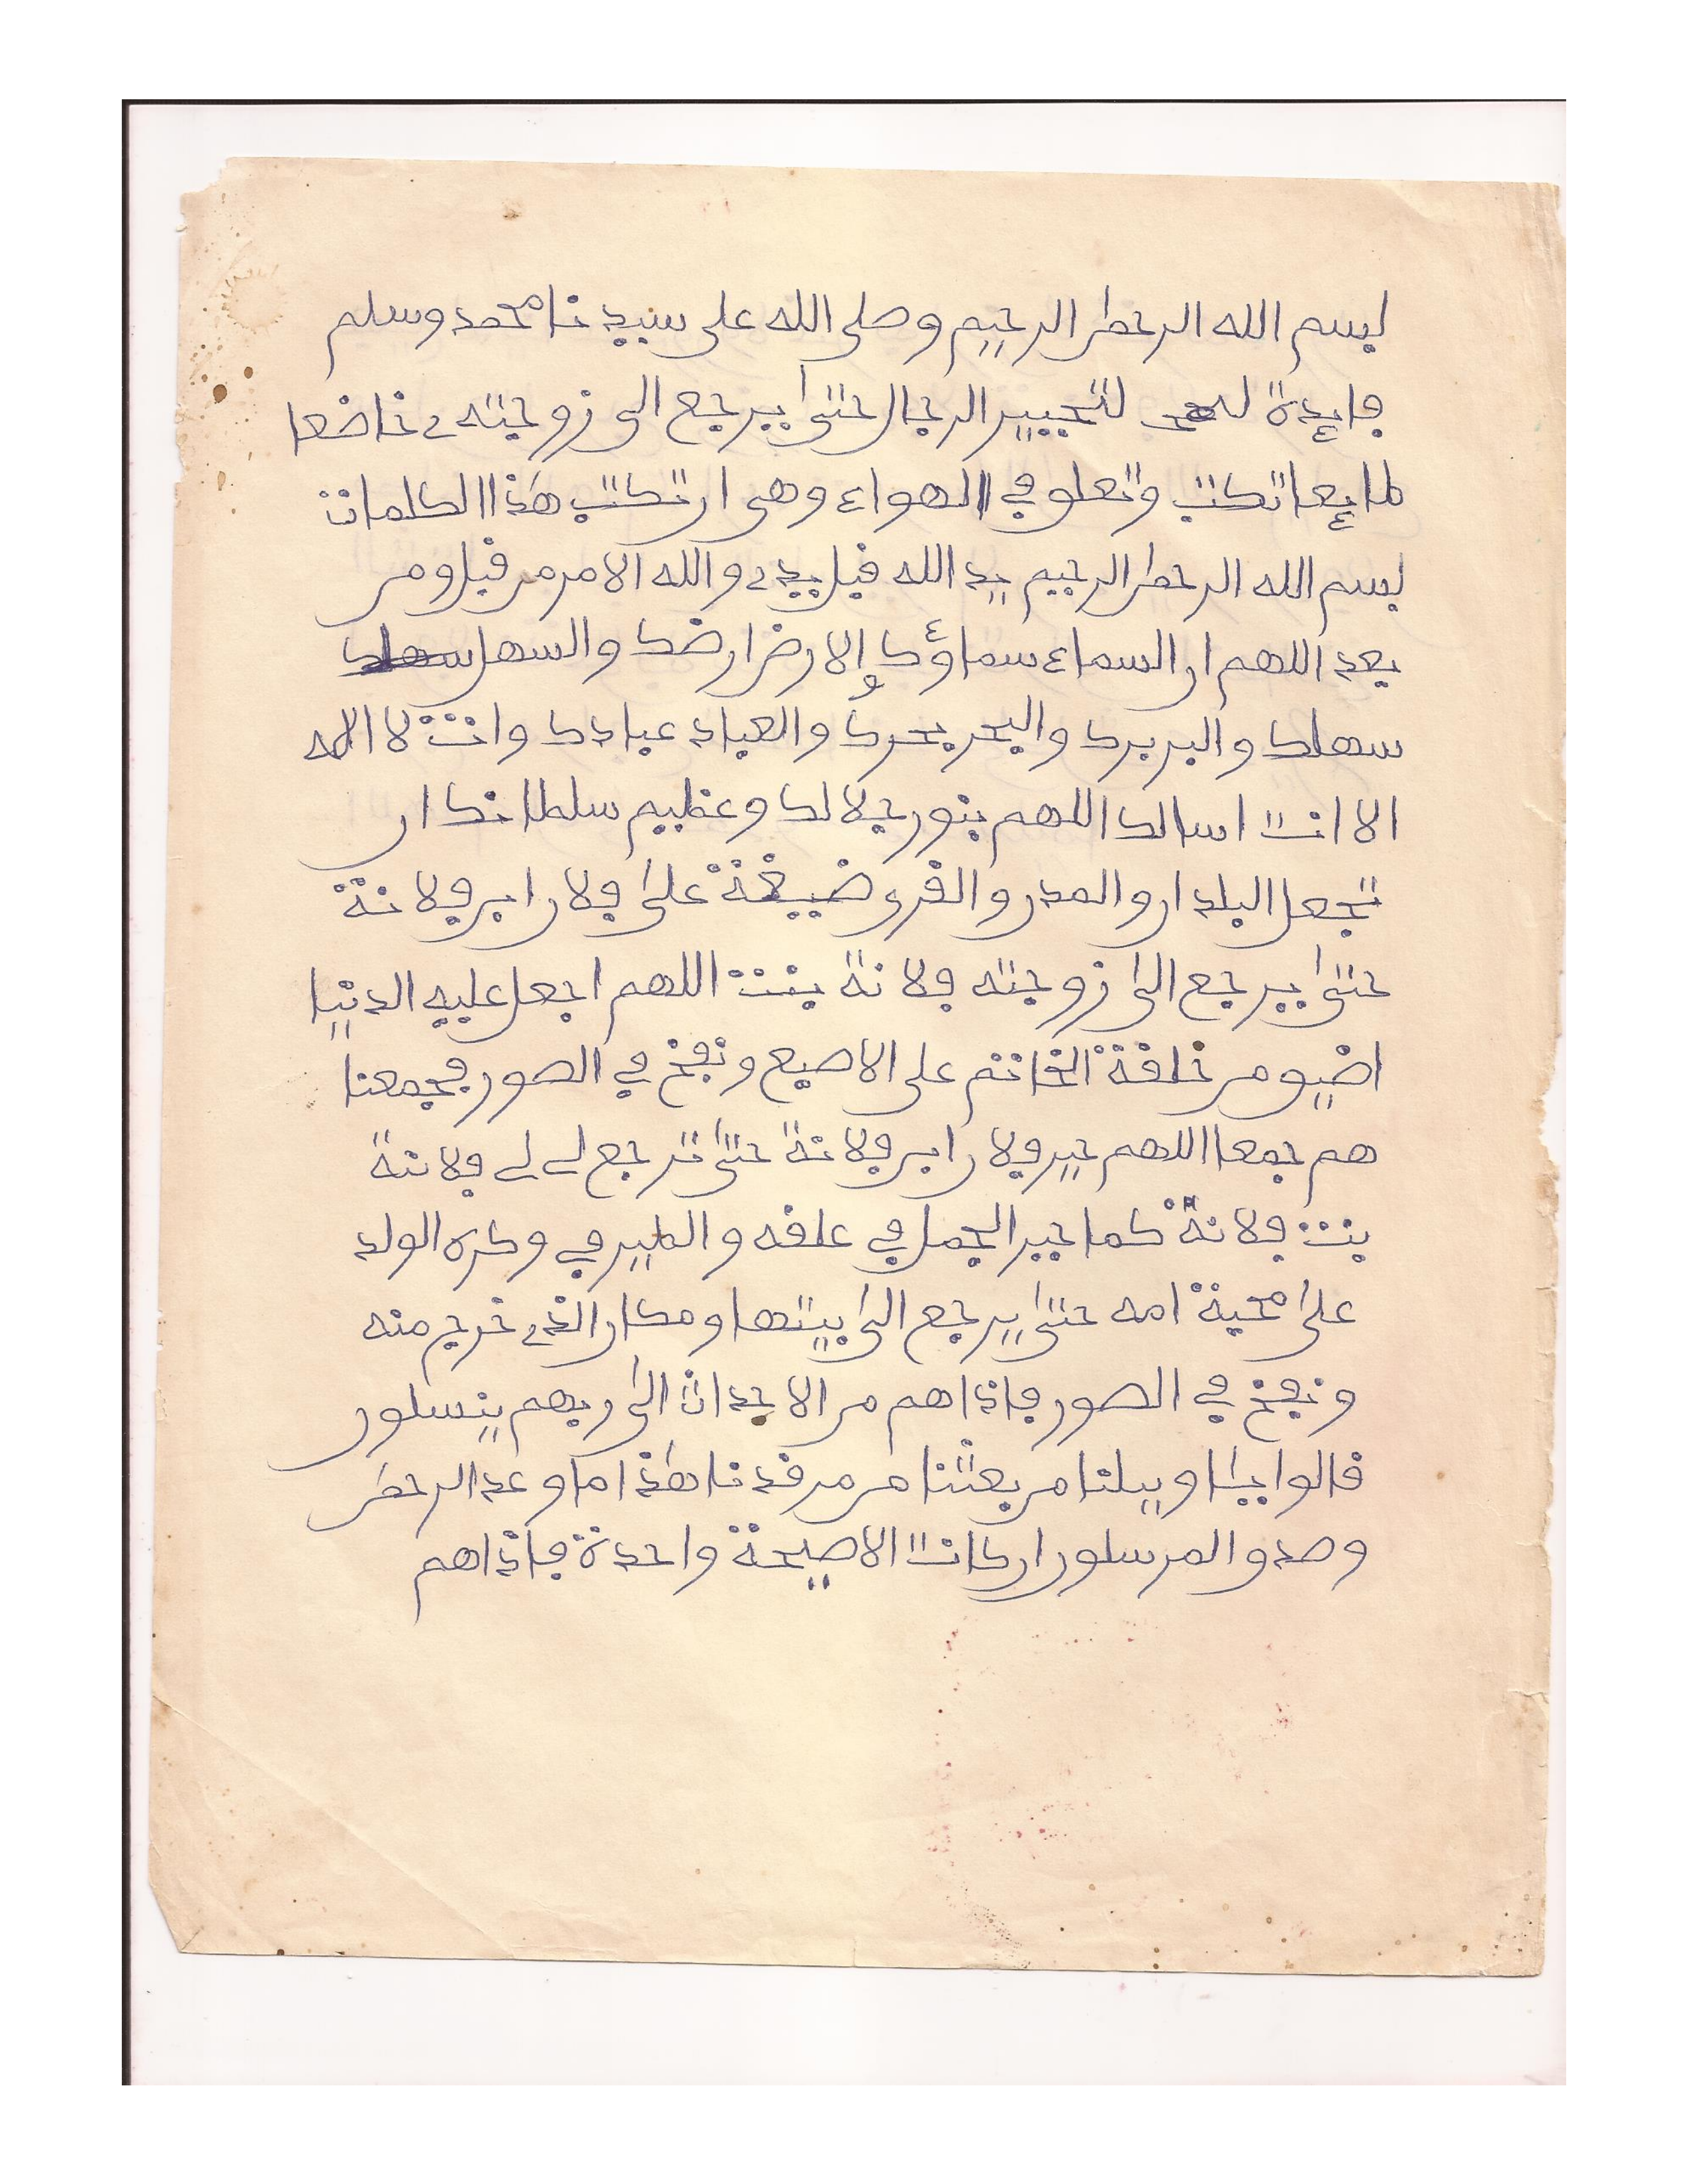 بسم الله الرحمن الرحيم وصلى الله على سيدنا محمد وسلم
فايدة لتحيير الرجال حتى يرجع الى زوجته خاضعا
طايعا تكتب وتعلو في الهواء وهي ان تكتب هذا الكلمات
بسم الله الرحمن الرحيم يد الله قبل يدي والله الامر من قبل ومن
بعد اللهم ان السماء سماؤك والارض ارضك والسهل
سهلك والبر برك والبحر بحرك والعباد عبادك وانت لا اله
الا انت اسالك اللهم بنور جلالك وعظيم سلطانك ان
تجعل البلدان والمدن والقرى ضيقة على فلان ابن فلانة
حتى يرجع الى زوجته فلانة بنت اللهم اجعل عليه الدنيا
اضيق من خلقة الخاتم على الاصبع ونفخ في الصور فجمعنا
هم جمعا اللهم حير فلان ابن فلانة حتى ترجع فلانة
بنت فلانة كما حير الجمل في علفه والطير في وكره الولد
على محبة امه حتى يرجع الى بيتها ومكان الذي خرج منه
ونفخ في الصور فاذا هم من الاجداث الى ربهم ينسلون
قالوا يا ويلنا من بعثنا من مرقدنا هذا ما وعد الرحمن
وصدق المرسلون ان كانت الا صيحة واحدة فاذا هم